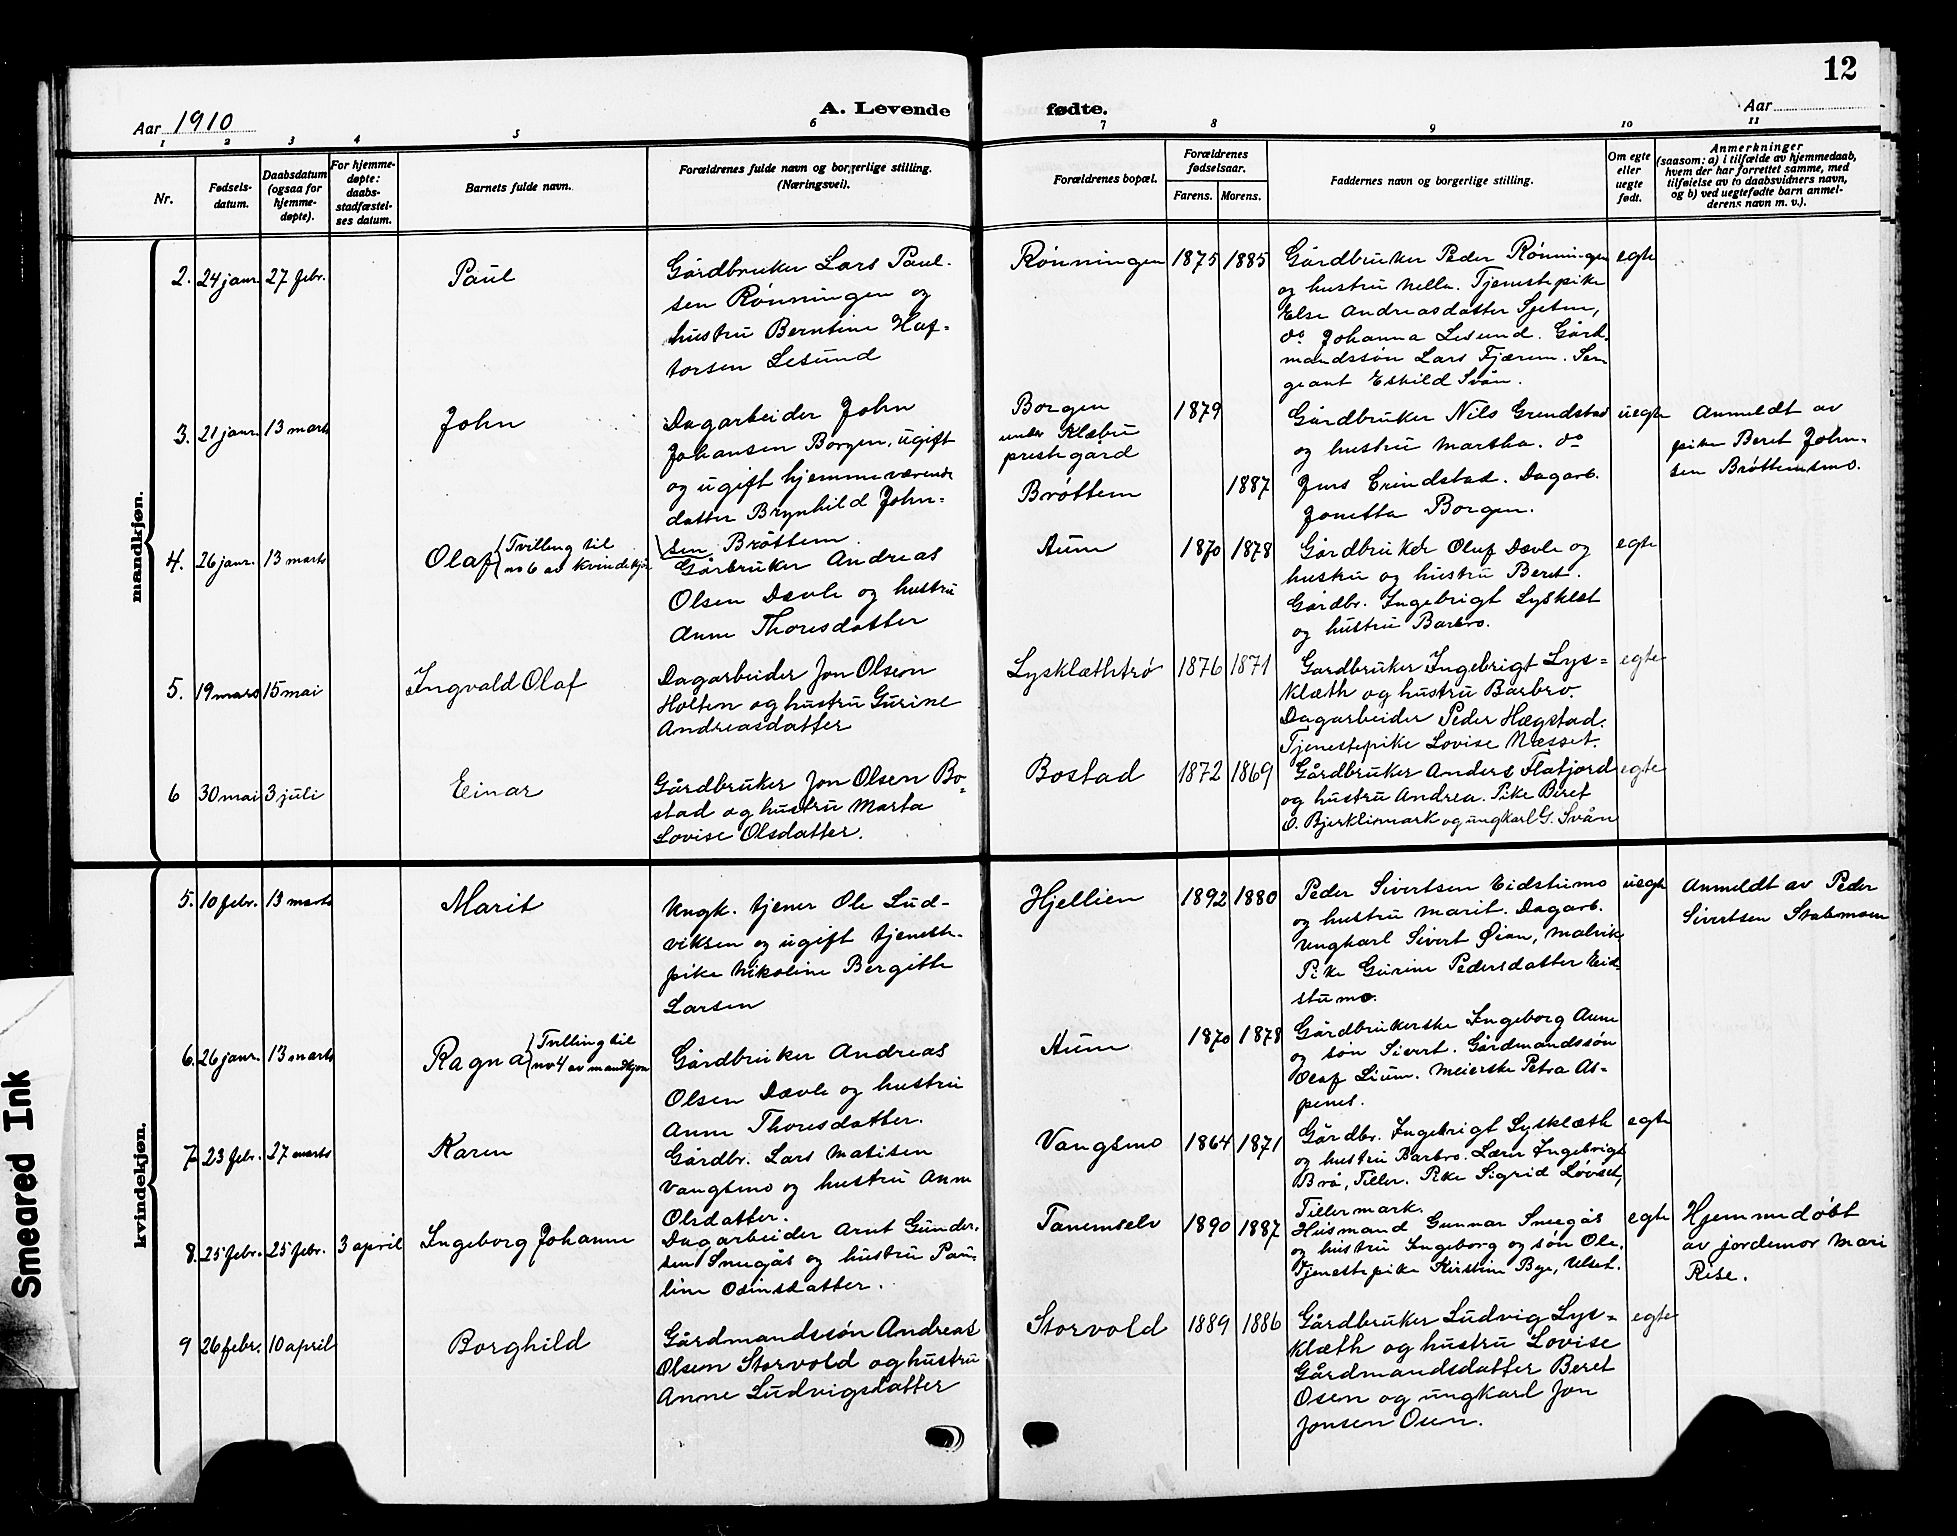 12
Aar 1910
A. Levende fødte.
Aar
1 2 3 4 5 6 7 8 9 10 11
Nr.
Fødsels-
datum.
Daabsdatum
(ogsaa for
hjemme-
døpte).
For hjemme-
døpte:
daabs-
stadfæstel-
ses datum.
Barnets fulde navn.
Forældrenes fulde navn og borgerlige stilling.
(Næringsvei).
Forældrenes bopæl.
Forældrenes
fødselsaar.
Farens. Morens.
Faddernes navn og borgerlige stilling.
Om egte
eller
uegte
født.
Anmerkninger
(saasom: a) i tilfælde av hjemmedaab,
hvem der har forrettet samme, med
tilføielse av to daabsvidners navn,
og b) ved uegtefødte barn anmel-
derens navn m. v.).
mandkjøn.
2. 24 janr. 27 febr.
Paul
Gårdbruker Lars Paul-
sen Rønningen og
hustru Berntine Haf-
torsen Lesund
Rønningen
1875 1885
Gårdbruker Peder Rønningen
og hustru Nella. Tjenestepike
Else Andreasdatter Sjetne,
do Johanna Lesund. Gård-
mandssøn Lars Fjærem. Ser-
geant Eskild Svån.
egte
3. 21 janr. 13 marts
John
Dagarbeider John
Johansen Borgen, ugift
og ugift hjemmeværende
datter Brynhild John-
sen Brøttem.
Borgen
under Klæbu
prestegård
Brøttem
1879
1887
Gårdbruker Nils Grendstad
og hustru Martha. do
Jens Grindstad. Dagarb.
Jonetta Borgen.
uegte
Anmeldt av
pike Beret John-
sen Brøttemsmo.
4. 26 janr. 13 marts
Olaf (Tvilling til
no 6 av kvindekjøn
Gårbruker Andreas
Olsen Dævle og hustru
Anne Thoresdatter
Aune
1870 1878
Gårdbruker Oluf Dævle og
hustru og hustru Beret.
Gårdbr. Ingebrigt Lysklæt
og hustru Barbro.
egte
5. 19 mars 15 mai
Ingvald Olaf
Dagarbeider Jon Olsen
Holten og hustru Gurine
Andreasdatter
Lysklæthtrø
1876 1871
Gardbruker Ingebrigt Lys-
klæth og hustru Barbro.
Dagarbeider Peder Hægstad.
Tjenestepike Lovise Næsset.
egte
6 30 mai 3 juli
Einar
Gårdbruker Jon Olsen Bo-
stad og hustru Marta
Lovise Olsdatter.
Bostad
1872 1869
Gårdbruker Anders Flafjord
og hustru Andrea. Pike Beret
O. Bjerklimark og ungkarl G. Svån
egte
kvindekjøn.
5. 10 febr. 13 marts
Marit
Ungk. tjener Ole Lud-
viksen og ugift tjeneste-
pike Nikoline Bergitte
Larsen
Hjellien
1892 1880
Peder Sivertsen Eidstumo
og hustru Marit. Dagarb.
Ungkarl Sivert Øian, Malvik
Pike Gurine Pedersdatter Eid-
stumo.
uegte
Anmeldt av Peder
Sivertsen Stabmoen
6. 26 janr. 13 marts
Ragna (Tvilling til
no 4 av mandkjøn
Gårdbruker Andreas
Olsen Dævle og hustru
Anne Thoresdatter.
Aune
1870 1878
Gårdbrukerske Ingeborg Aune
og søn Sivert. Gårdmandssøn
Olaf Lium. Meierske Petra As-
penes.
7 23 febr. 27 marts
Karen
Gårdbr. Lars Matisen
Vangsmo og hustru Anne
Olsdatter.
Vangsmo
1864 1871
Gårdbr. Ingebrigt Lysklæth
og hustru Barbro. Lærer Ingebrigt
Brø, Tiller. Pike Sigrid Løvset,
Tillermark.
egte
8. 25 febr. 25 febr. 3 april
Ingeborg Johanne
Dagarbeider Arnt Gunder-
sen Sneegås og hustru Pau-
line Odinsdatter.
Tanemselv
1890 1887
Husmand Gunnar Sneegås
og hustru Ingeborg og søn Ole.
Tjenestepike Kirstine Bye, Ulset.
egte
Hjemmedøbt
av jordemor Mari
Rise.
9 26 febr. 10 april
Borghild
Gårdmandssøn Andreas
Olsen Storvold og hustru
Anne Ludvigsdatter
Storvold
1889 1886
Gårdbruker Ludvig Lys-
klæth og hustru Lovise
Gårdmandsdatter Beret
Osen og ungkarl Jon
Jonsen Osen.
egte
Smeared Ink